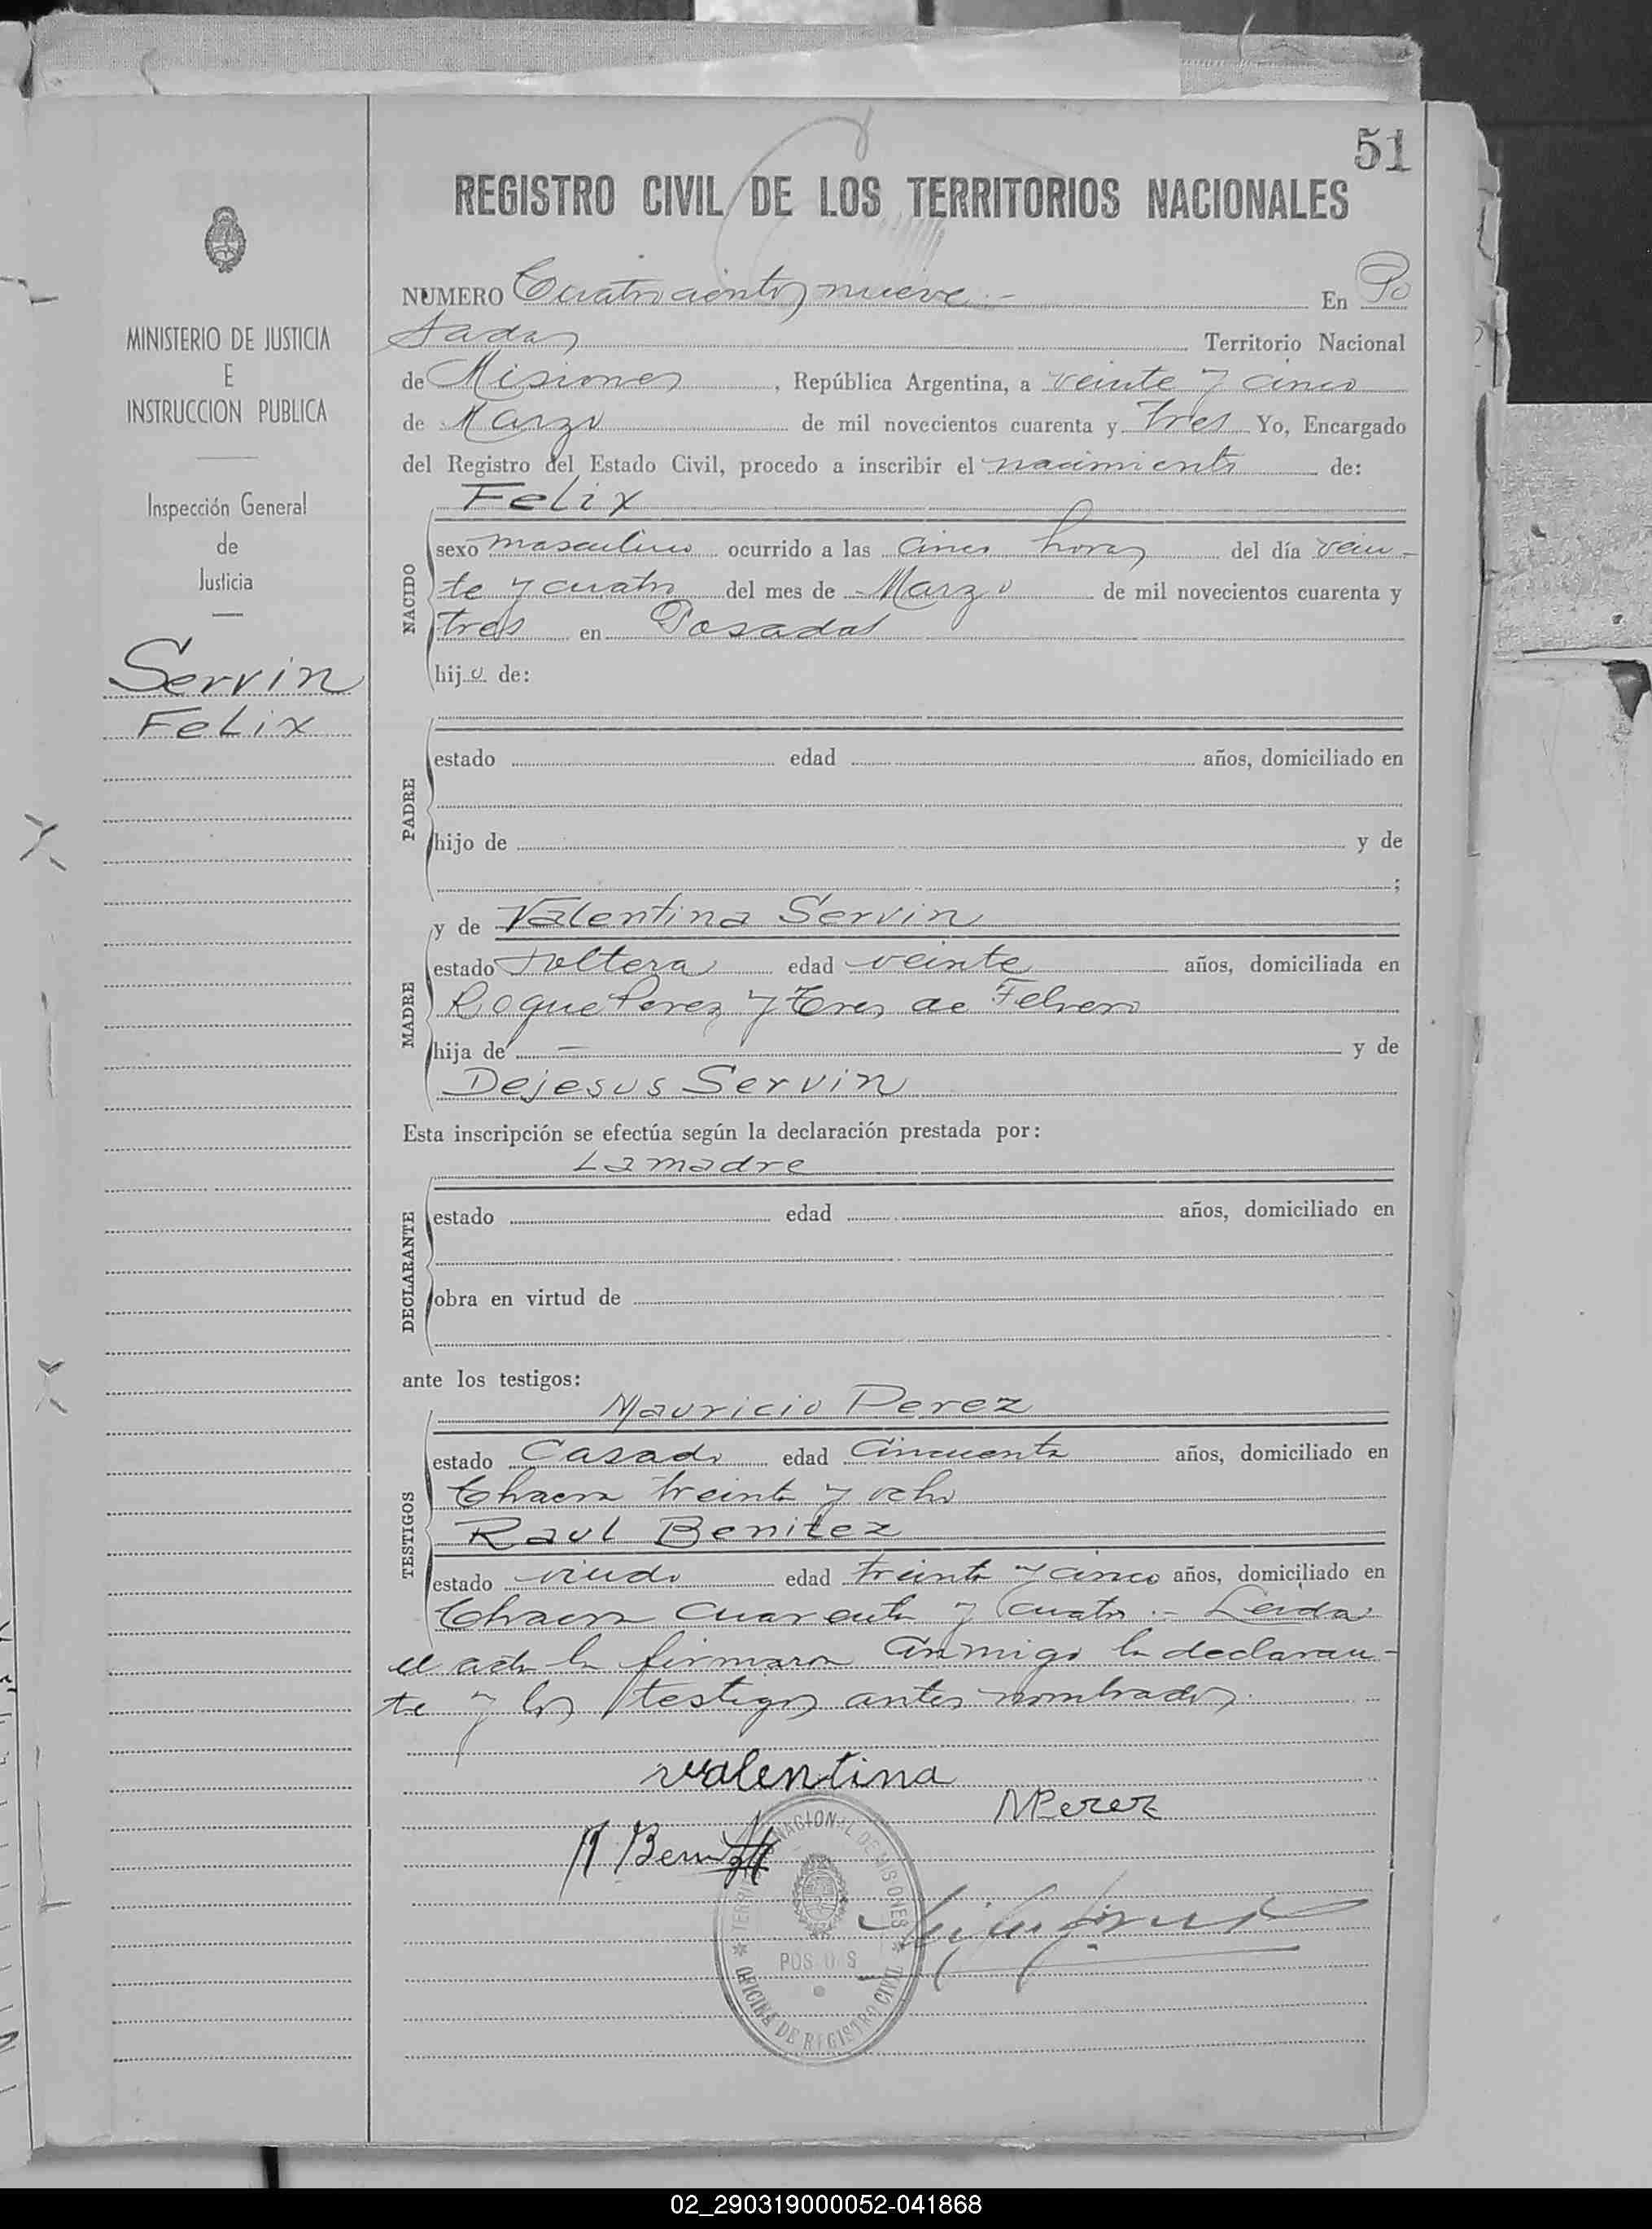 51
REGISTRO CIVIL DE LOS TERRITORIOS NACIONALES
MINISTERIO DE JUSTICIA
E
INSTRUCCION PUBLICA
Inspección General
de
Justicia
Servin
Felix
NUMERO Cuatrocientos nueve.- En Po
sadas Territorio Nacional
de Misiones, República Argentina, a veinte y cinco
de Marzo de mil novecientos cuarenta y tres Yo, Encargado
del Registro del Estado Civil, procedo a inscribir el nacimiento de:
Felix
NACIDO
sexo masculino ocurrido a las cinco horas del día vein-
te y cuatro del mes de Marzo de mil novecientos cuarenta y
tres en Posadas
hijo de:
PADRE
estado edad años, domiciliado en
hijo de y de
;
y de Valentina Servin
MADRE
estado soltera edad veinte años, domiciliada en
Roque Perez y Tres de Febrero
hija de — y de
Dejesus Servin
Esta inscripción se efectúa según la declaración prestada por:
La madre
DECLARANTE
estado edad años, domiciliado en
obra en virtud de
ante los testigos:
Mauricio Perez
TESTIGOS
estado Casado edad Cincuenta años, domiciliado en
Chacra treinta y ocho
Raul Benitez
estado viudo edad treinta y cinco años, domiciliado en
Chacra cuarenta y cuatro.- Leida
el acta la firmaron conmigo la declaran-
te y los testigos antes nombrados.
valentina
M Perez
R. Benitez
TERRITORIO NACIONAL DE MISIONES
POSADAS
OFICINA DE REGISTRO CIVIL
02_290319000052-041868